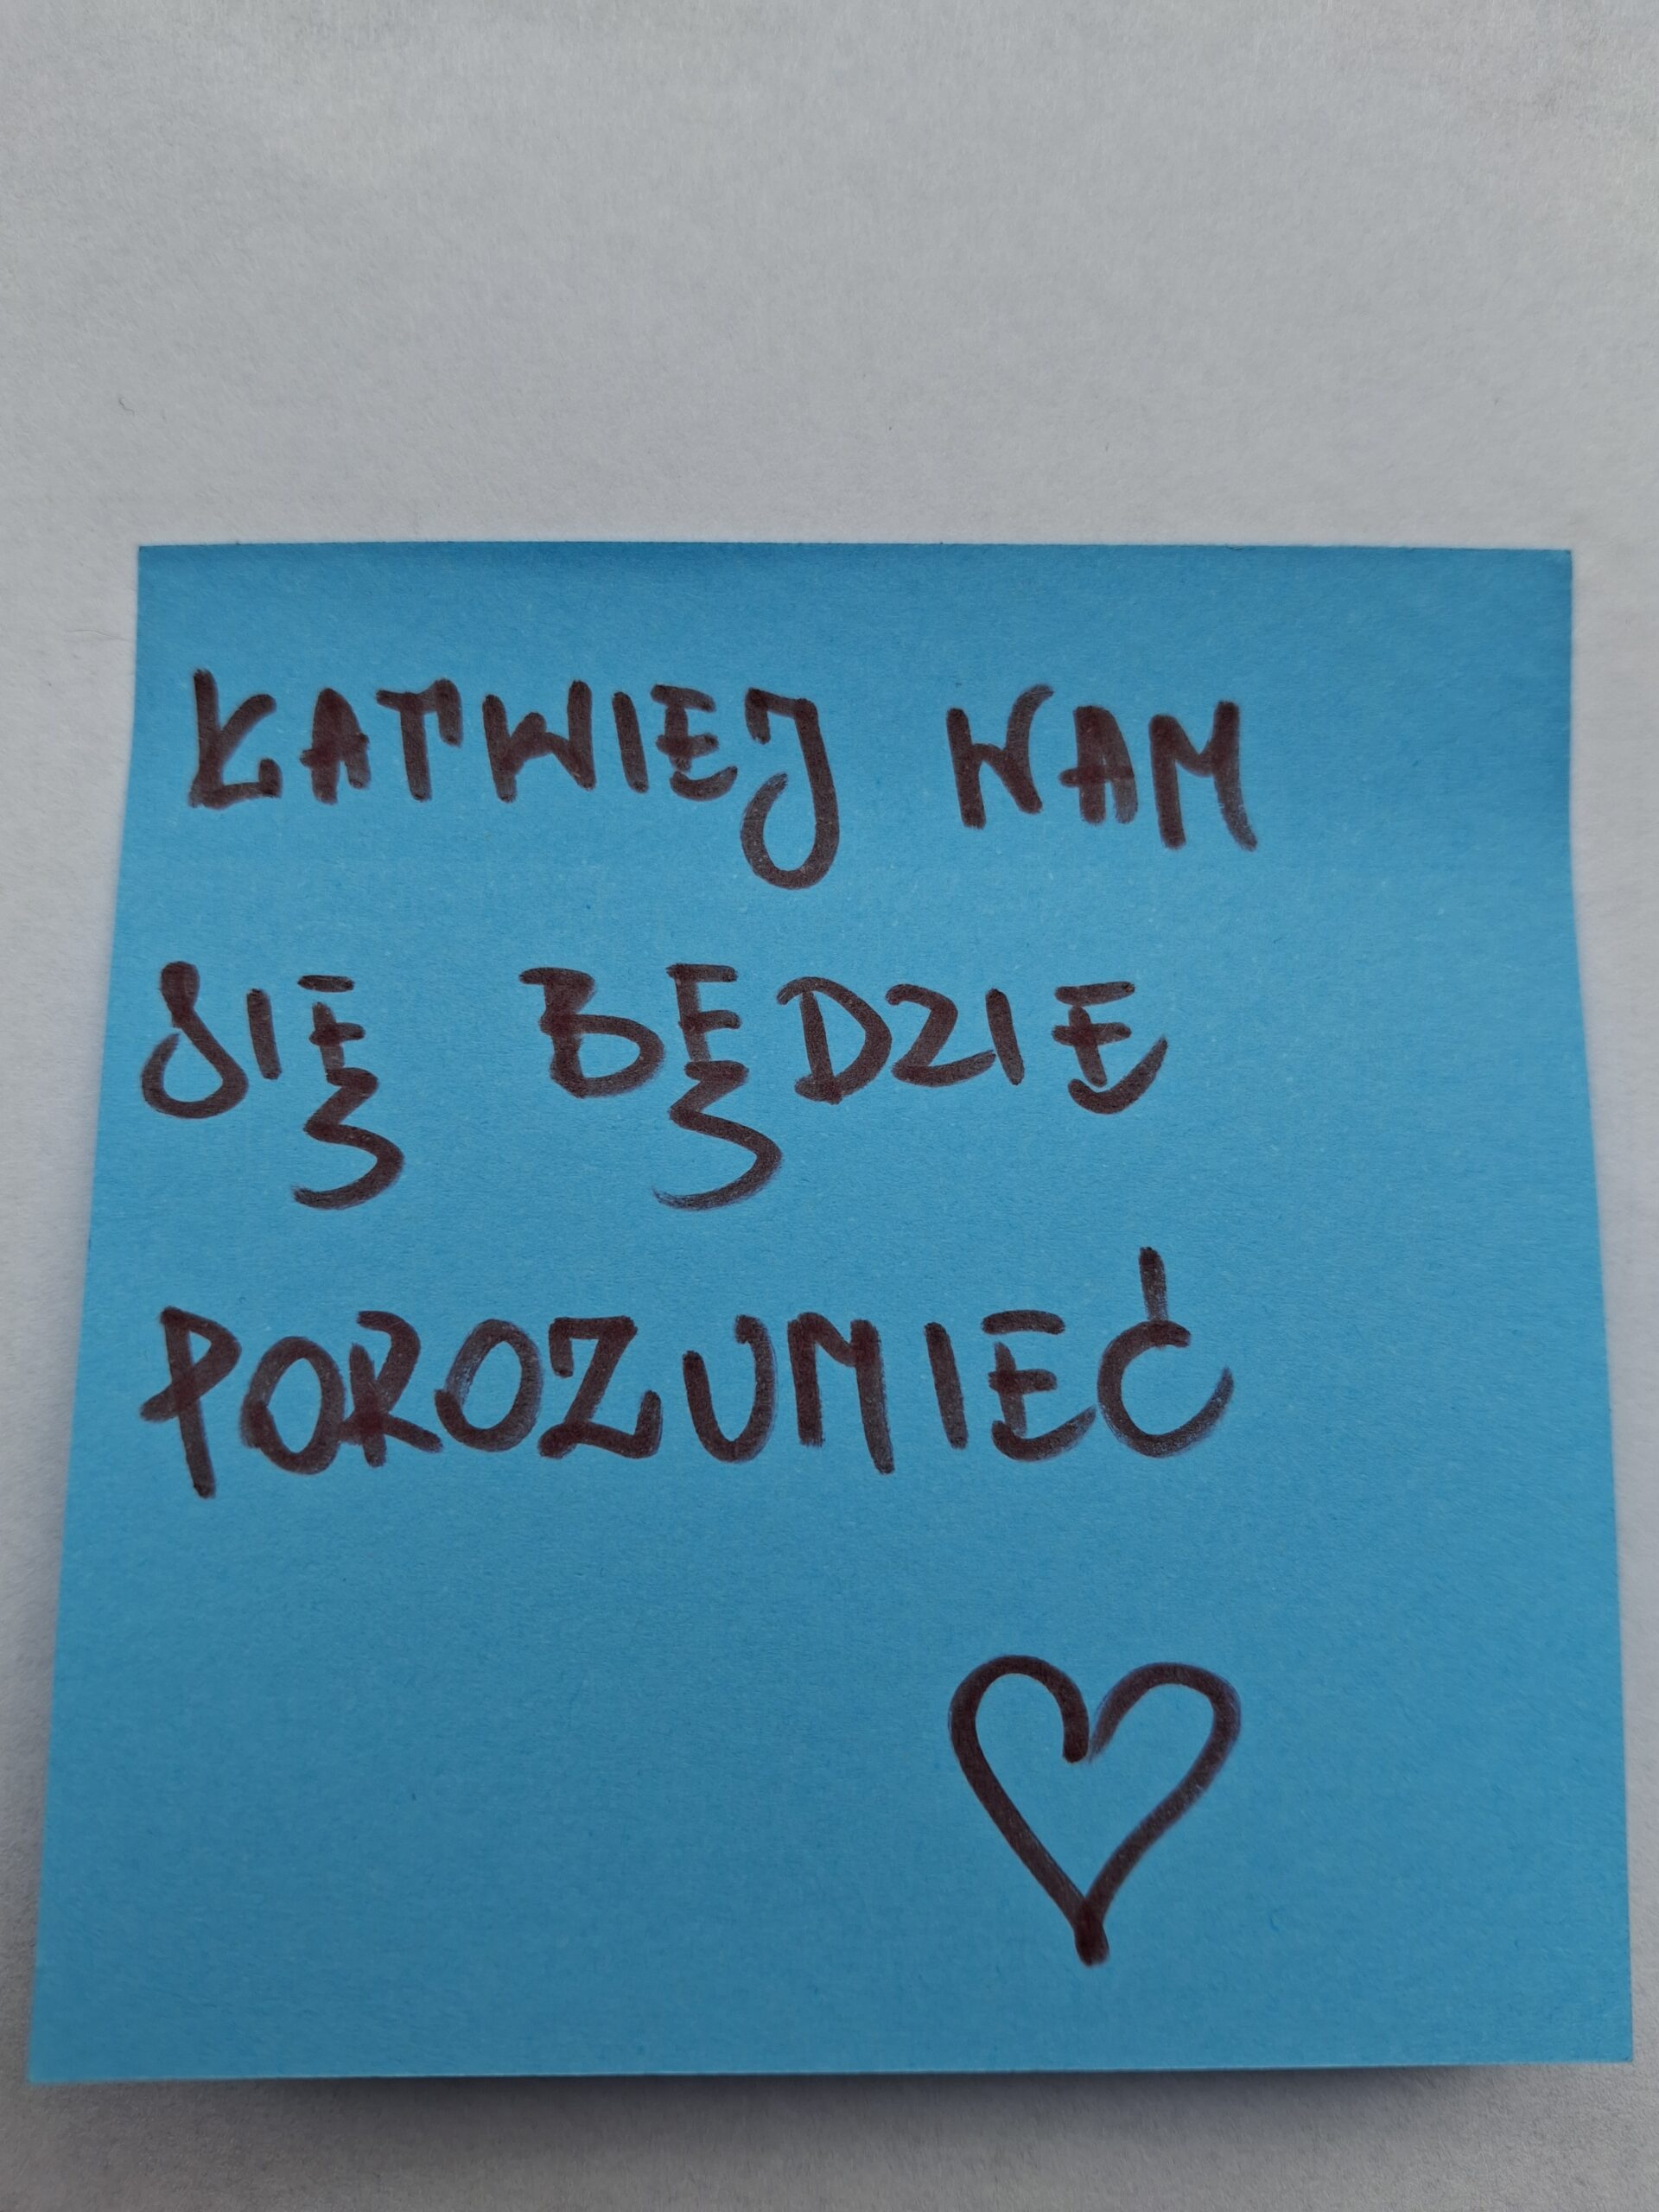 ŁATWIEJ NAM
SIĘ BĘDZIE
POROZUMIEĆ